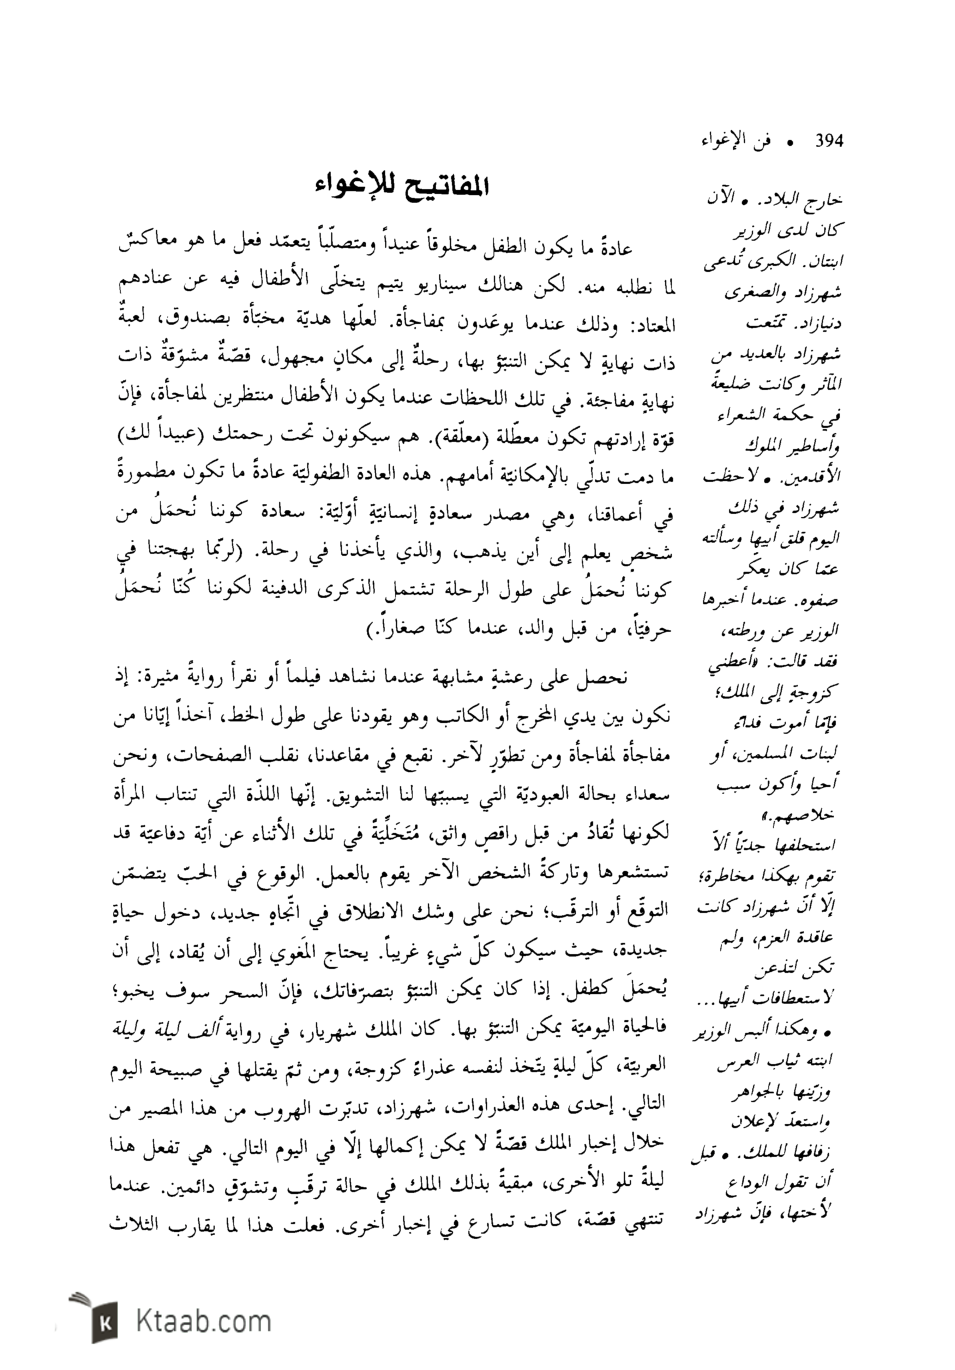 394 • فن الإغواء
خارج البلاد. • الآن
كان لدى الوزير
ابنتان. الكبرى تُدعى
شهرزاد والصغرى
دنيازاد. تمتّعت
شهرزاد بالعديد من
المآثر وكانت ضليعةً
في حكمة الشعراء
وأساطير الملوك
الأقدمين. • لاحظت
شهرزاد في ذلك
اليوم قلق أبيها وسألته
عمّا كان يعكّر
صفوه. عندما أخبرها
الوزير عن ورطته،
فقد قالت: «أعطني
كزوجةٍ إلى الملك؛
فإمّا أموت فداءً
لبنات المسلمين، أو
أحيا وأكون سبب
خلاصهم.»
استحلفها جديّاً ألاّ
تقوم بهكذا مخاطرة؛
إلّا أنّ شهرزاد كانت
عاقدة العزم، ولم
تكن لتذعن
لاستعطافات أبيها...
• وهكذا ألبس الوزير
ابنته ثياب العرس
وزيّنها بالجواهر
واستعدّ لإعلان
زفافها للملك. • قبل
أن تقول الوداع
لأختها، فإنّ شهرزاد
المفاتيح للإغواء
عادةً ما يكون الطفل مخلوقاً عنيداً ومتصلّباً يتعمّد فعل ما هو معاكسٌ
لما نطلبه منه. لكن هنالك سيناريو يتيم يتخلّى الأطفال فيه عن عنادهم
المعتاد: وذلك عندما يوعَدون بمفاجأة. لعلّها هديّة مخبّأة بصندوق، لعبةٌ
ذات نهايةٍ لا يمكن التنبّؤ بها، رحلةٌ إلى مكانٍ مجهول، قصّةٌ مشوّقةٌ ذات
نهايةٍ مفاجئة. في تلك اللحظات عندما يكون الأطفال منتظرين لمفاجأة، فإنّ
قوّة إرادتهم تكون معطّلة (معلّقة). هم سيكونون تحت رحمتك (عبيداً لك)
ما دمت تدلّي بالإمكانيّة أمامهم. هذه العادة الطفوليّة عادةً ما تكون مطمورةً
في أعماقنا، وهي مصدر سعادةٍ إنسانيّةٍ أوّليّة: سعادة كوننا نُحمَلُ من
شخصٍ يعلم إلى أين يذهب، والذي يأخذنا في رحلة. (لربّما بهجتنا في
كوننا نُحمَلُ على طول الرحلة تشتمل الذكرى الدفينة لكوننا كُنّا نُحمَلُ
حرفيّاً، من قبل والد، عندما كنّا صغاراً.)
نحصل على رعشةٍ مشابهة عندما نشاهد فيلماً أو نقرأ روايةً مثيرة: إذ
نكون بين يدي المخرج أو الكاتب وهو يقودنا على طول الخط، آخذاً إيّانا من
مفاجأة لمفاجأة ومن تطوّرٍ لآخر. نقبع في مقاعدنا، نقلب الصفحات، ونحن
سعداء بحالة العبوديّة التي يسببّها لنا التشويق. إنّها اللذّة التي تنتاب المرأة
لكونها تُقادُ من قبل راقصٍ واثق، مُتَخَلِّيَةً في تلك الأثناء عن أيّة دفاعية قد
تستشعرها وتاركةً الشخص الآخر يقوم بالعمل. الوقوع في الحبّ يتضمّن
التوقّع أو الترقّب؛ نحن على وشك الانطلاق في اتّجاهٍ جديد، دخول حياةٍ
جديدة، حيث سيكون كلّ شيءٍ غريباً. يحتاج المَغوي إلى أن يُقاد، إلى أن
يُحمَلَ كطفل. إذا كان يمكن التنبّؤ بتصرّفاتك، فإنّ السحر سوف يخبو؛
فالحياة اليوميّة يمكن التنبّؤ بها. كان الملك شهريار، في رواية ألف ليلة وليلة
العربيّة، كلّ ليلةٍ يتّخذ لنفسه عذراءً كزوجة، ومن ثمّ يقتلها في صبيحة اليوم
التالي. إحدى هذه العذراوات، شهرزاد، تدبّرت الهروب من هذا المصير من
خلال إخبار الملك قصّةً لا يمكن إكمالها إلّا في اليوم التالي. هي تفعل هذا
ليلةً تلو الأخرى، مبقيةً بذلك الملك في حالة ترقّبٍ وتشوّقٍ دائمين. عندما
تنتهي قصّة، كانت تسارع في إخبار أخرى. فعلت هذا لما يقارب الثلاث
K Ktaab.com